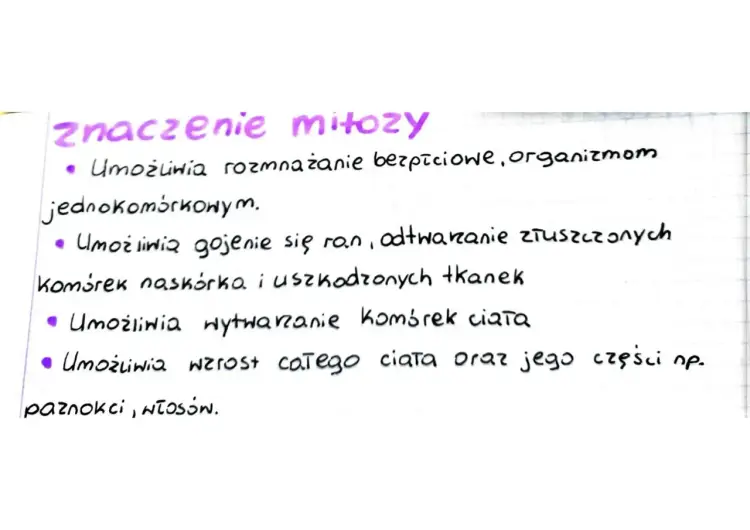 znaczenie mitozy
• Umożliwia rozmnażanie bezpłciowe, organizmom
jednokomórkowym.
• Umożliwia gojenie się ran, odtwarzanie złuszczonych
komórek naskórka i uszkodzonych tkanek
• Umożliwia wytwarzanie komórek ciała
• Umożliwia wzrost całego ciała oraz jego części np.
paznokci, włosów.